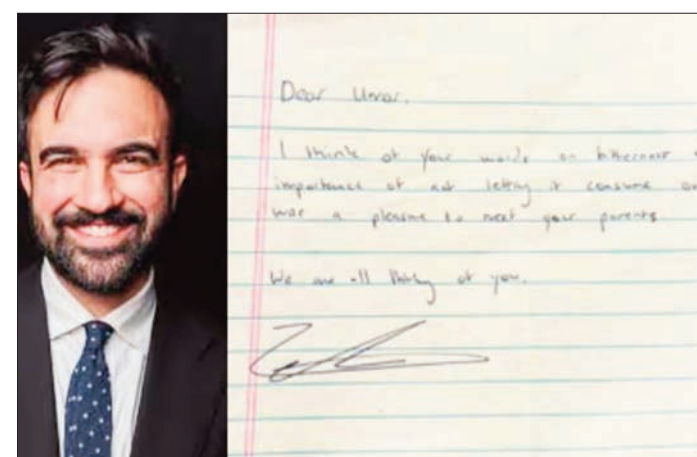 Dear Umar,
I think of your words on bitterness
importance of not letting it consume
was a pleasure to meet your parents
We are all thinking of you.